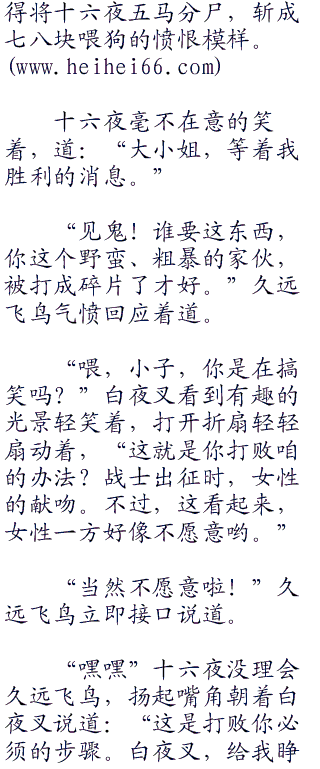 得将十六夜五马分尸，斩成
七八块喂狗的愤恨模样。
(www.heihei66.com)
十六夜毫不在意的笑
着，道：“大小姐，等着我
胜利的消息。”
“见鬼！谁要这东西，
你这个野蛮、粗暴的家伙，
被打成碎片了才好。”久远
飞鸟气愤回应着道。
“喂，小子，你是在搞
笑吗？”白夜叉看到有趣的
光景轻笑着，打开折扇轻轻
扇动着，“这就是你打败咱
的办法？战士出征时，女性
的献吻。不过，这看起来，
女性一方好像不愿意哟。”
“当然不愿意啦！”久
远飞鸟立即接口说道。
“嘿嘿”十六夜没理会
久远飞鸟，扬起嘴角朝着白
夜叉说道：“这是打败你必
须的步骤。白夜叉，给我睁